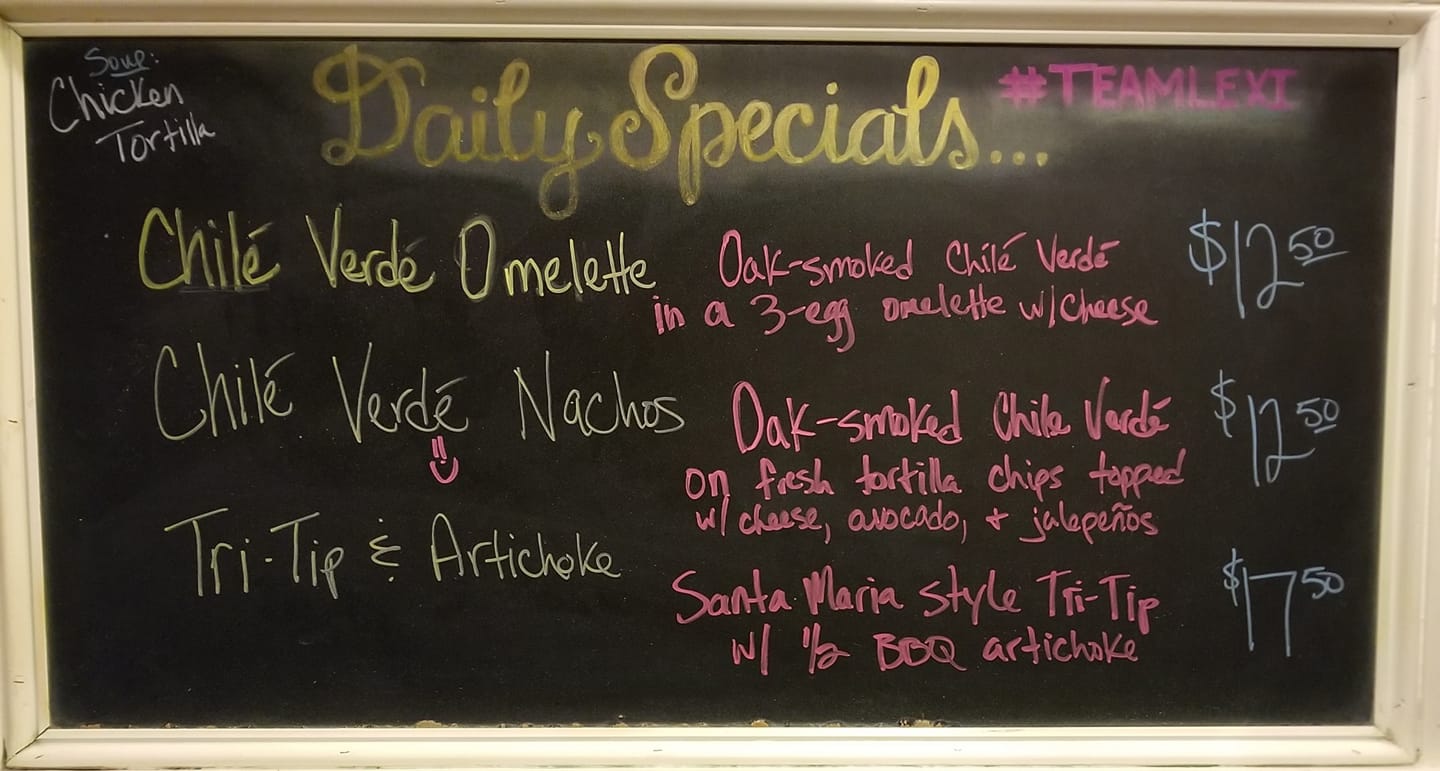 Soup:
Chicken
Tortilla
Daily Specials...
#TEAMLEXI
Chilé Verdé Omelette
Oak-smoked Chilé Verdé
in a 3-egg omelette w/cheese
$12 50
Chilé Verdé Nachos
Oak-smoked Chile Verdé
on fresh tortilla chips topped
w/ cheese, avocado, + jalepeños
$12 50
Tri-Tip & Artichoke
Santa Maria style Tri-Tip
w/ 1/2 BBQ artichoke
$17 50